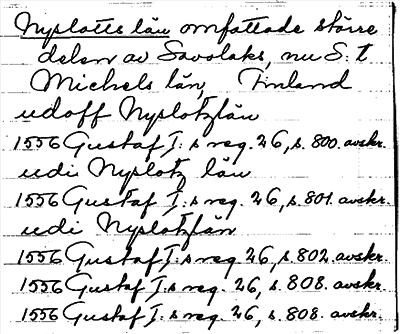 Nyslotts län omfattade större
delen av Savolaks, nu S:t
Michels län, Finland
udoff Nyslotzlän
1556 Gustaf I:s reg. 26, s. 800. avskr.
udi Nyslotz län
1556 Gustaf I:s reg. 26, s. 801. avskr.
udi Nyslotzlän
1556 Gustaf I:s reg. 26, s. 802. avskr.
1556 Gustaf I:s reg. 26, s. 808. avskr.
1556 Gustaf I:s reg. 26, s. 808. avskr.